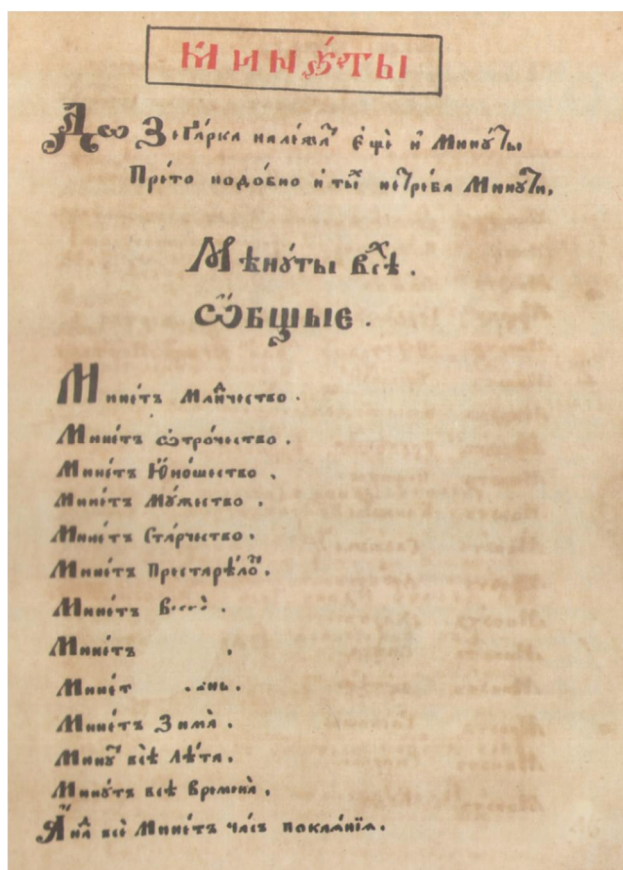 МИНꙋ́ТЫ
До Зеѓарка належа́т᾽ е́щѐ и҆ Минꙋ́ты
Пре́то подо́бно и҆ ты́х не тре́ба Минꙋ́ти,
Мѣнꙋ́ты всѣ́х.
ѻ҆́бщыѧ.
Мине́тъ Млⷣнчество.
Мине́тъ ѡ҆тро́чество.
Мине́тъ Ю҆́ношество.
Мине́тъ Мꙋ́жество.
Мине́тъ Ста́рчество.
Мине́тъ Престарѣ́лоⷭ҇.
Мине́тъ
Мине́тъ
Мине́т
Мине́тъ Зима̀.
Минꙋ́ⷮ всѣ̀ лѣ́та.
Минꙋ́тъ всѣ̀ времена̀.
всѐ Мине́тъ ча́съ покаѧ́нїѧ.